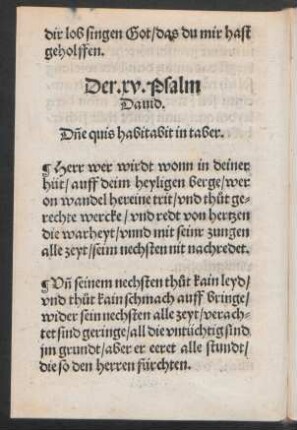 dir lob singen Got/das du mir hast
geholffen.
Der .xv. Psalm
Dauid.
Dñe quis habitabit in taber.
¶ Herr wer wirdt wonn in deiner
hüt/auff deim heyligen berge/wer
on wandel hereine trit/vnd thůt ge-
rechte wercke/vnd redt von hertzen
die warheyt/vnnd mit seinr zungen
alle zeyt/seim nechsten nit nachredet.
¶ Vñ seinem nechsten thůt kain leyd/
vnd thůt kain schmach auff bringe/
wider sein nechsten alle zeyt/verach-
tet sind geringe/all die vntüchtig sind
jm grundt/aber er eeret alle stundt/
die so den herren fürchten.